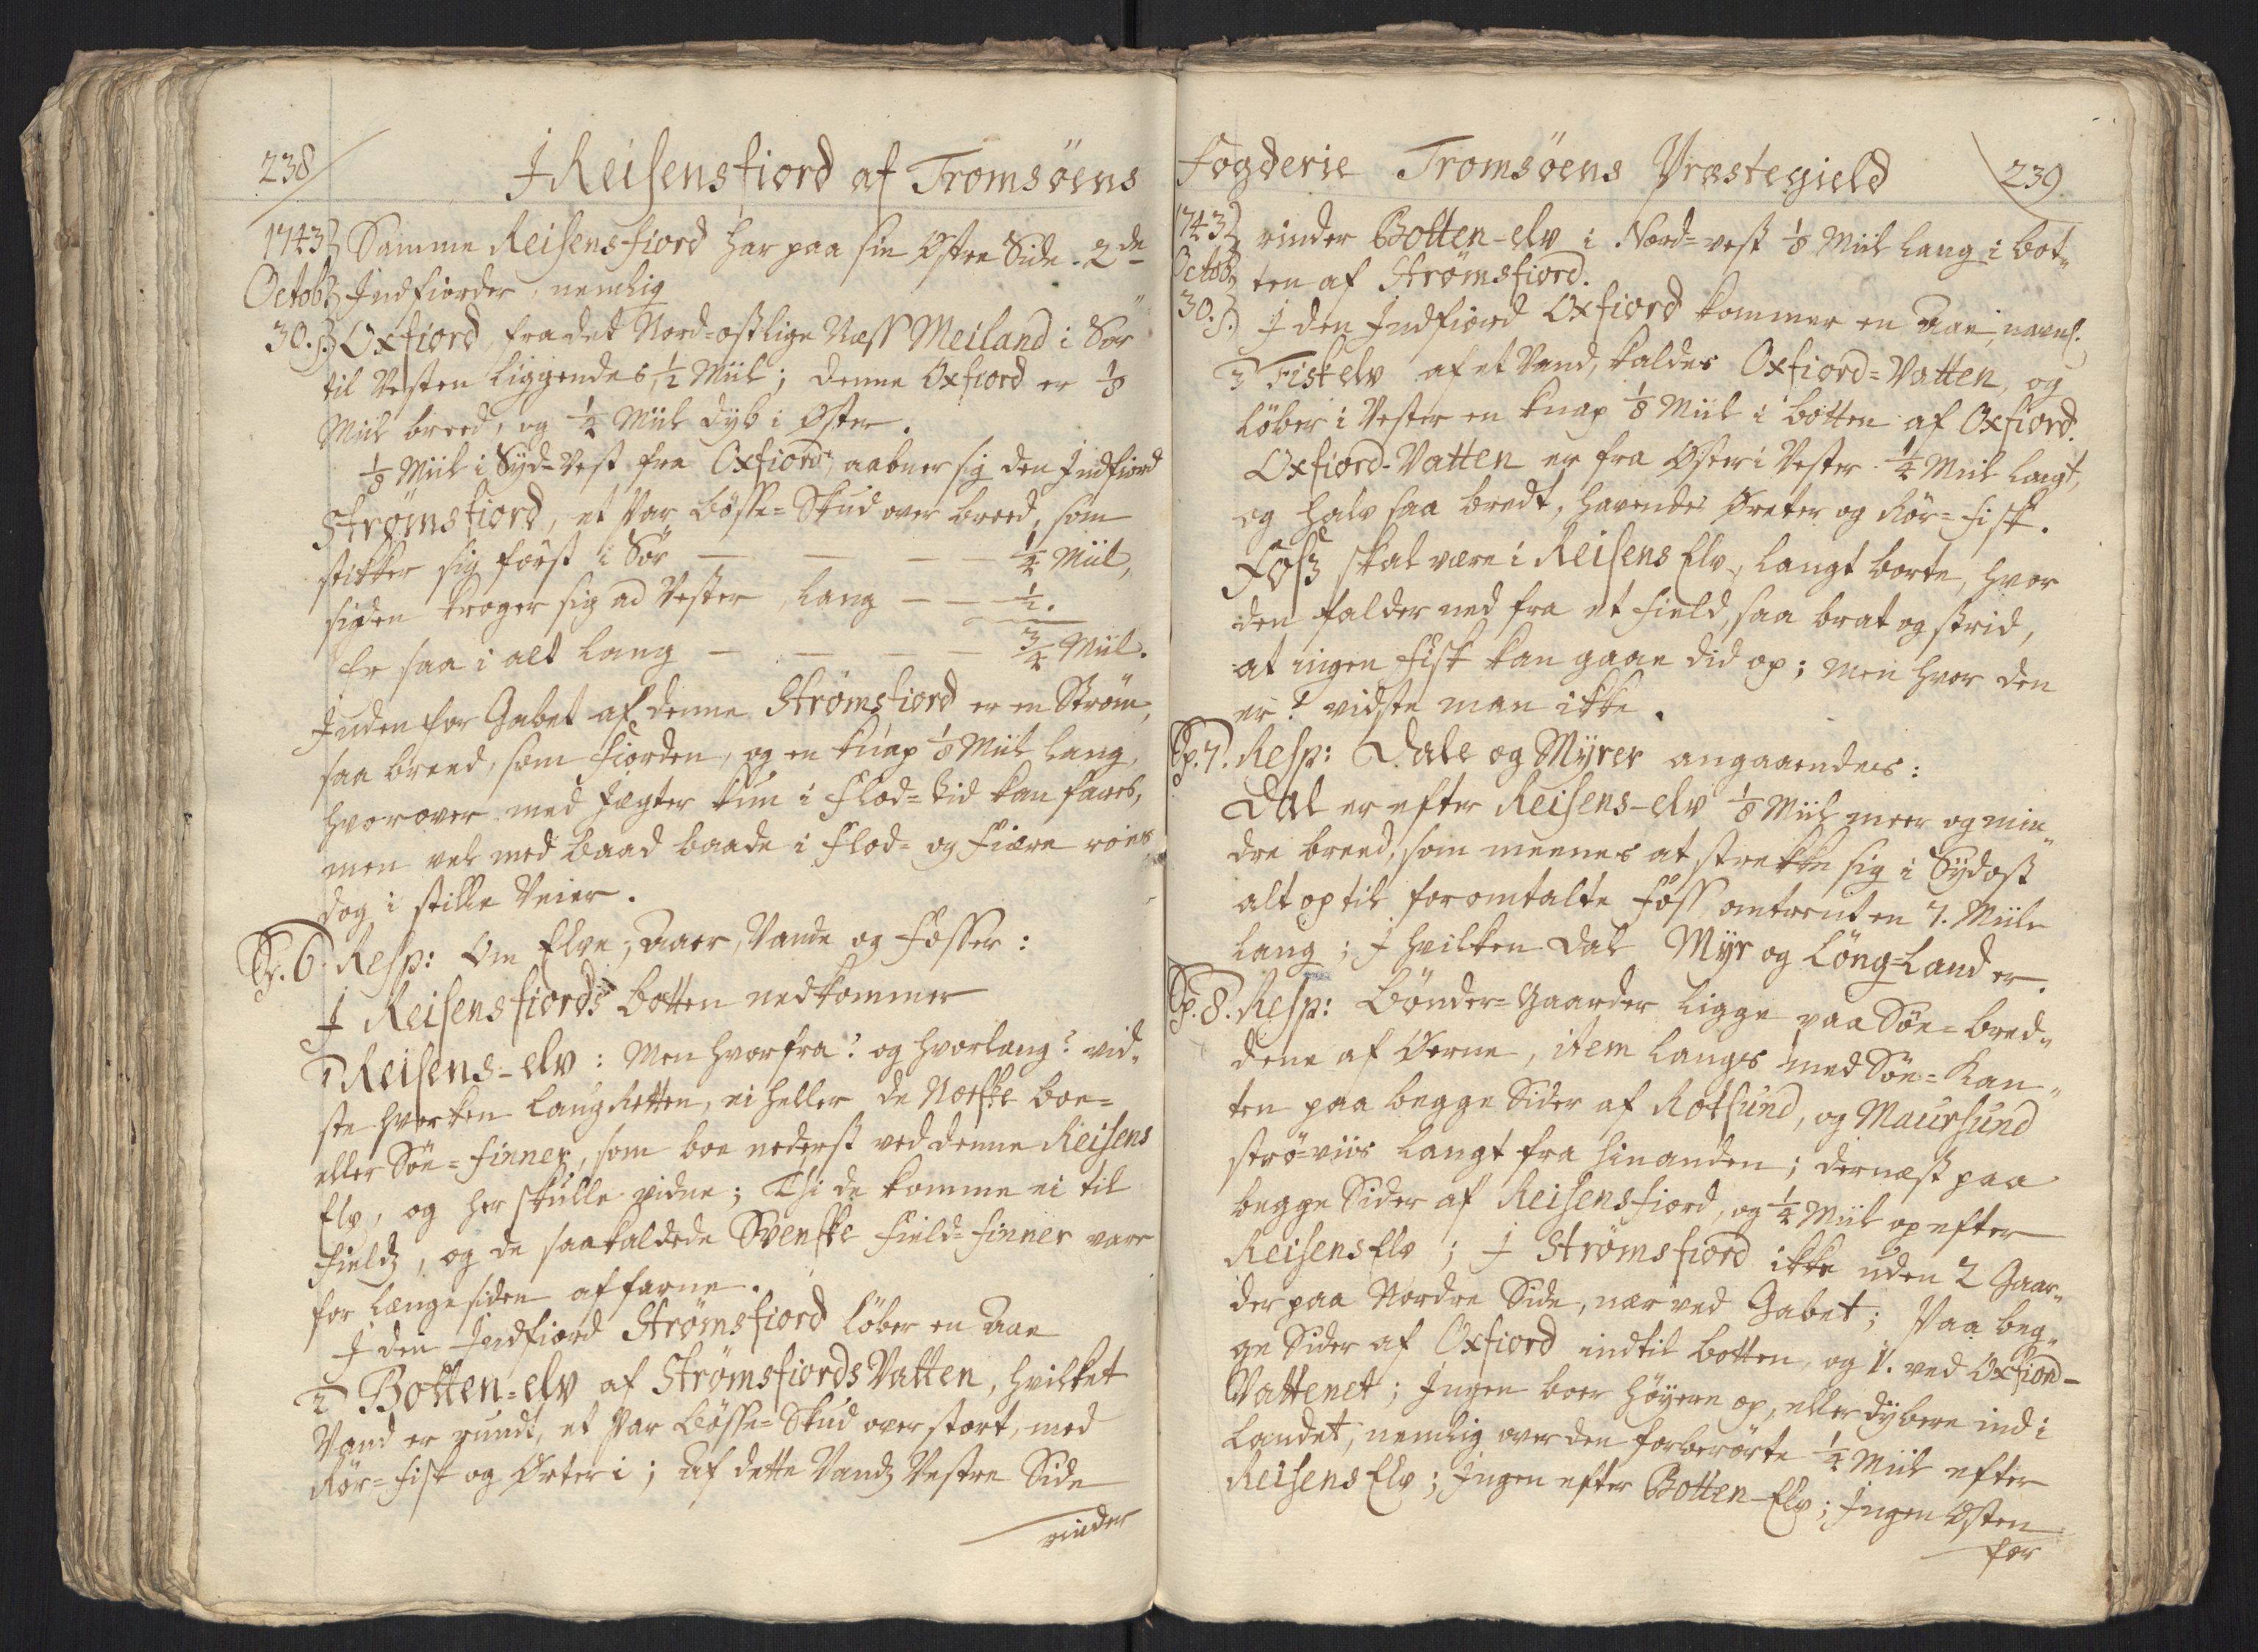 238
I Reisensfiord af Tromsöens
1743 Samme Reisensfiord har paa sin Østre Side 2de
Octobr Indfiorder, nemlig
30. s. Oxfiord, fra det Nord-ostlige Næss Meiland i Sør
til Vesten liggendes, 1/2 Miil; denne Oxfiord er 1/8
Miil breed, og 1/4 Miil dyb i Øster.
1/8 Miil i Syd-Vest fra Oxfiord, aabner sig den Indfiord
Strømsfiord, et Par Bösse-Skud over breed, som
stikker sig först i Sør — — — 1/4 Miil,
siden kroger sig ad Vester, lang — — 1/2.
Er saa i alt lang — — — — 3/4 Miil.
Inden for Gabet af denne Strømsfiord er en Ström,
saa breed, som Fiorden, og en knap 1/8 Miil lang,
hvorover med Jægter kun i Flod-tid kan fares,
men vel med Baad baade i Flod- og Fiære roes,
dog i stille Veier.
Sp. 6. Resp: Om Elve, Aaer, Vande og Fosser:
I Reisensfiords botten nedkommer
1 Reisens-elv: Men hvorfra? og hvorlang? vid-
ste hverken LaugRetten, ei heller de Norske boe-
eller Söe-Finner, som boe nederst ved denne Reisens
Elv, og her skulle vidne; Thi de komme ei til
Fields, og de saakaldede Svenske Field-Finner vare
for længe siden affarne.
I den Indfiord Strømsfiord löber en Aae
2 Botten-elv af Strømsfiords Vatten, hvilket
Vand er rundt, et Par Bösse-Skud over stort, med
Rör-fisk og Ørter i; Af dette Vands Vestre Side
rinder
Fogderie Tromsöens Præstegield
239
1743 rinder Botten-elv i Nord-vest 1/8 Miil lang i bot-
Octobr ten af Strømsfiord.
30. s. I den Indfiord Oxfiord kommer en Aae, navnl.
3 Fiskelv af et Vand, kaldes Oxfiord-Vatten, og
löber i Vester en knap 1/8 Miil i botten af Oxfiord.
Oxfiord-Vatten er fra Øster i Vester 1/4 Miil langt,
og halv saa bredt, havendes Ørreter og Rör-fisk.
Foss skal være i Reisens Elv, langt borte, hvor
den falder ned fra et Field, saa brat og strid,
at ingen Fisk kan gaae did op; men hvor den
er? vidste man ikke.
Sp. 7. Resp: Dale og Myrer angaaendes:
Dal er efter Reisens-elv 1/8 Miil meer og min-
dre breed, som meenes at strekke sig i Sydost
alt op til foromtalte Foss omtrent en 7. Miile
lang; I hvilken Dal Myr og Löng-Land er.
Sp. 8. Resp: Bönder-Gaarder ligge paa Söe-bred-
dene af Øerne, item langs med Söe-Kan-
ten paa begge Sider af Rotsund, og Maursund
strö-viis langt fra hinanden; dernæst paa
begge Sider af Reisensfiord, og 1/4 Miil op efter
Reisens Elv; I Strømsfiord ikke uden 2 Gaar-
der paa Nordre Side, nær ved Gabet; Paa beg-
ge Sider af Oxfiord indtil botten, og 1. ved Oxfiord-
Vattenet; Ingen boer höyere op, eller dybere ind i
Landet, nemlig over den forberörte 1/4 Miil efter
Reisens Elv; Ingen efter Botten-Elv; Ingen Østen
for